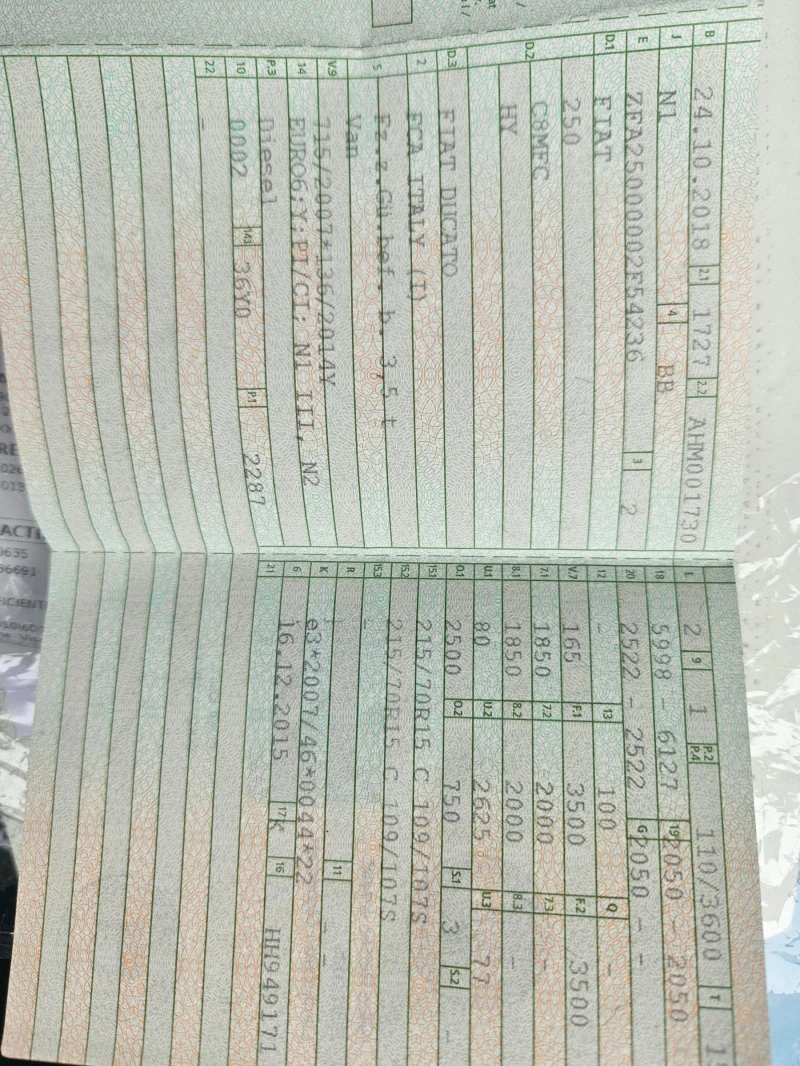 B 24.10.2018 2.1 1727 2.2 AHM001730
J N1 4 BB
E ZFA25000002F54236 3 2
D.1 FIAT
D.2 250
C8MFC
HY
D.3 FIAT DUCATO
2 FCA ITALY (I)
5 Fz.z.Gü.bef. b. 3,5 t
Van
V.9 715/2007*136/2014Y
14 EURO6;Y;PI/CI; N1 III, N2
P.3 Diesel
10 0002 14.1 36Y0 P.1 2287
22 -
L 2 9 1 P.2 P.4 110/3600 T
18 5998 - 6127 19 2050 - 2050
20 2522 - 2522 G 2050 - -
12 - 13 100 Q -
V.7 165 F.1 3500 F.2 3500
7.1 1850 7.2 2000 7.3 -
8.1 1850 8.2 2000 8.3 -
U.1 80 U.2 2625 U.3 77
O.1 2500 O.2 750 S.1 3 S.2 -
15.1 215/70R15 C 109/107S
15.2 215/70R15 C 109/107S
15.3
R 11 -
K e3*2007/46*0044*22 -
6 16.12.2015 17 K 16 HH949171
21